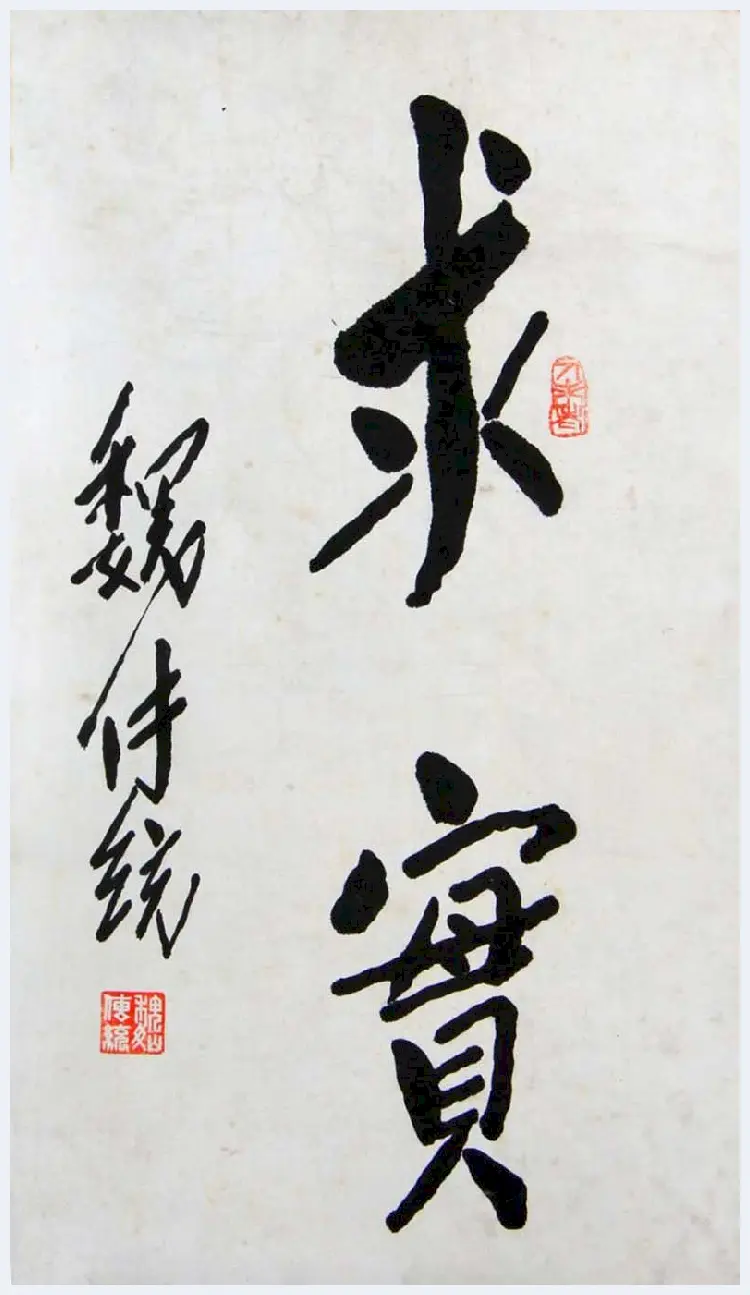 求實
魏传統
魏傳統